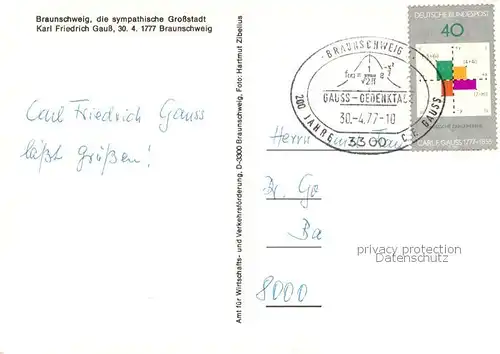 Braunschweig, die sympathische Großstadt
Karl Friedrich Gauß, 30. 4. 1777 Braunschweig
Carl Friedrich Gauss
läßt grüßen!
Amt für Wirtschafts- und Verkehrsförderung, D-3300 Braunschweig, Foto: Hartmut Zibelius
BRAUNSCHWEIG
GAUSS-GEDENKTAG
30.-4.77-10
3300
200 JAHRE C.F. GAUSS
DEUTSCHE BUNDESPOST
40
CARL F. GAUSS 1777-1855
Herrn
Dr. Go
Ba
8000
privacy protection
Dematons